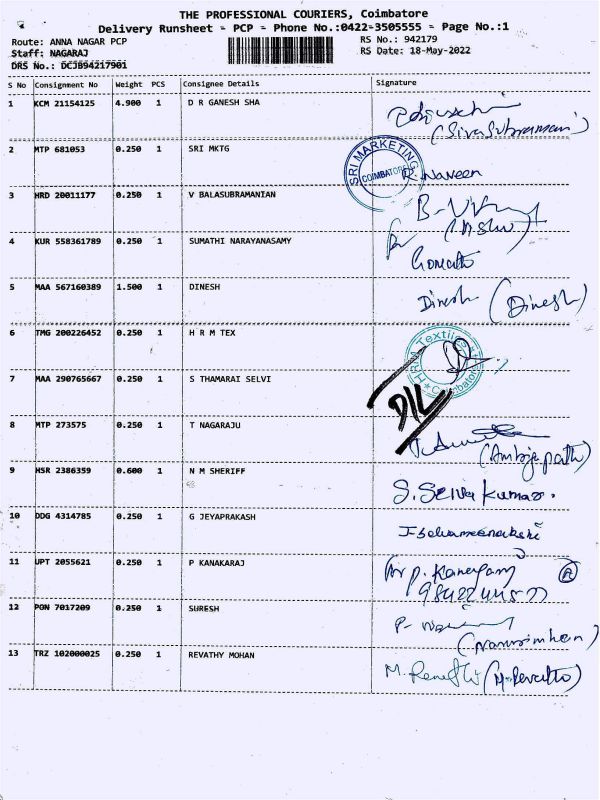 THE PROFESSIONAL COURIERS, Coimbatore
Delivery Runsheet - PCP - Phone No.:0422-3505555 - Page No.:1
Route: ANNA NAGAR PCP
RS No.: 942179
Staff: NAGARAJ
RS Date: 18-May-2022
DRS No.: DCJB94217901
S No Consignment No Weight PCS Consignee Details Signature
1 KCM 21154125 4.900 1 D R GANESH SHA
(Sivasubramani)
2 MTP 681053 0.250 1 SRI MKTG
SRI MARKETING
COIMBATORE
R. Naveen
3 HRD 20011177 0.250 1 V BALASUBRAMANIAN
4 KUR 558361789 0.250 1 SUMATHI NARAYANASAMY
Gomathi
5 MAA 567160389 1.500 1 DINESH
Dinesh (Dinesh)
6 TMG 200226452 0.250 1 H R M TEX
HRM Textile
Coimbatore
7 MAA 290765667 0.250 1 S THAMARAI SELVI
D/L
8 MTP 273575 0.250 1 T NAGARAJU
9 HSR 2386359 0.600 1 N M SHERIFF
S. Selva Kumar.
10 DDG 4314785 0.250 1 G JEYAPRAKASH
11 UPT 2055621 0.250 1 P KANAKARAJ
12 PON 7017209 0.250 1 SURESH
(Narasimhan)
13 TRZ 102000025 0.250 1 REVATHY MOHAN
M. Revathi (M. Revathi)